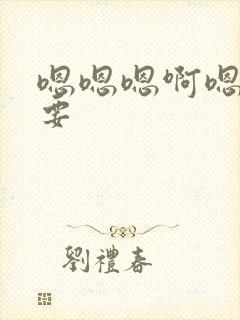 嗯嗯嗯啊嗯
要
劉禮春